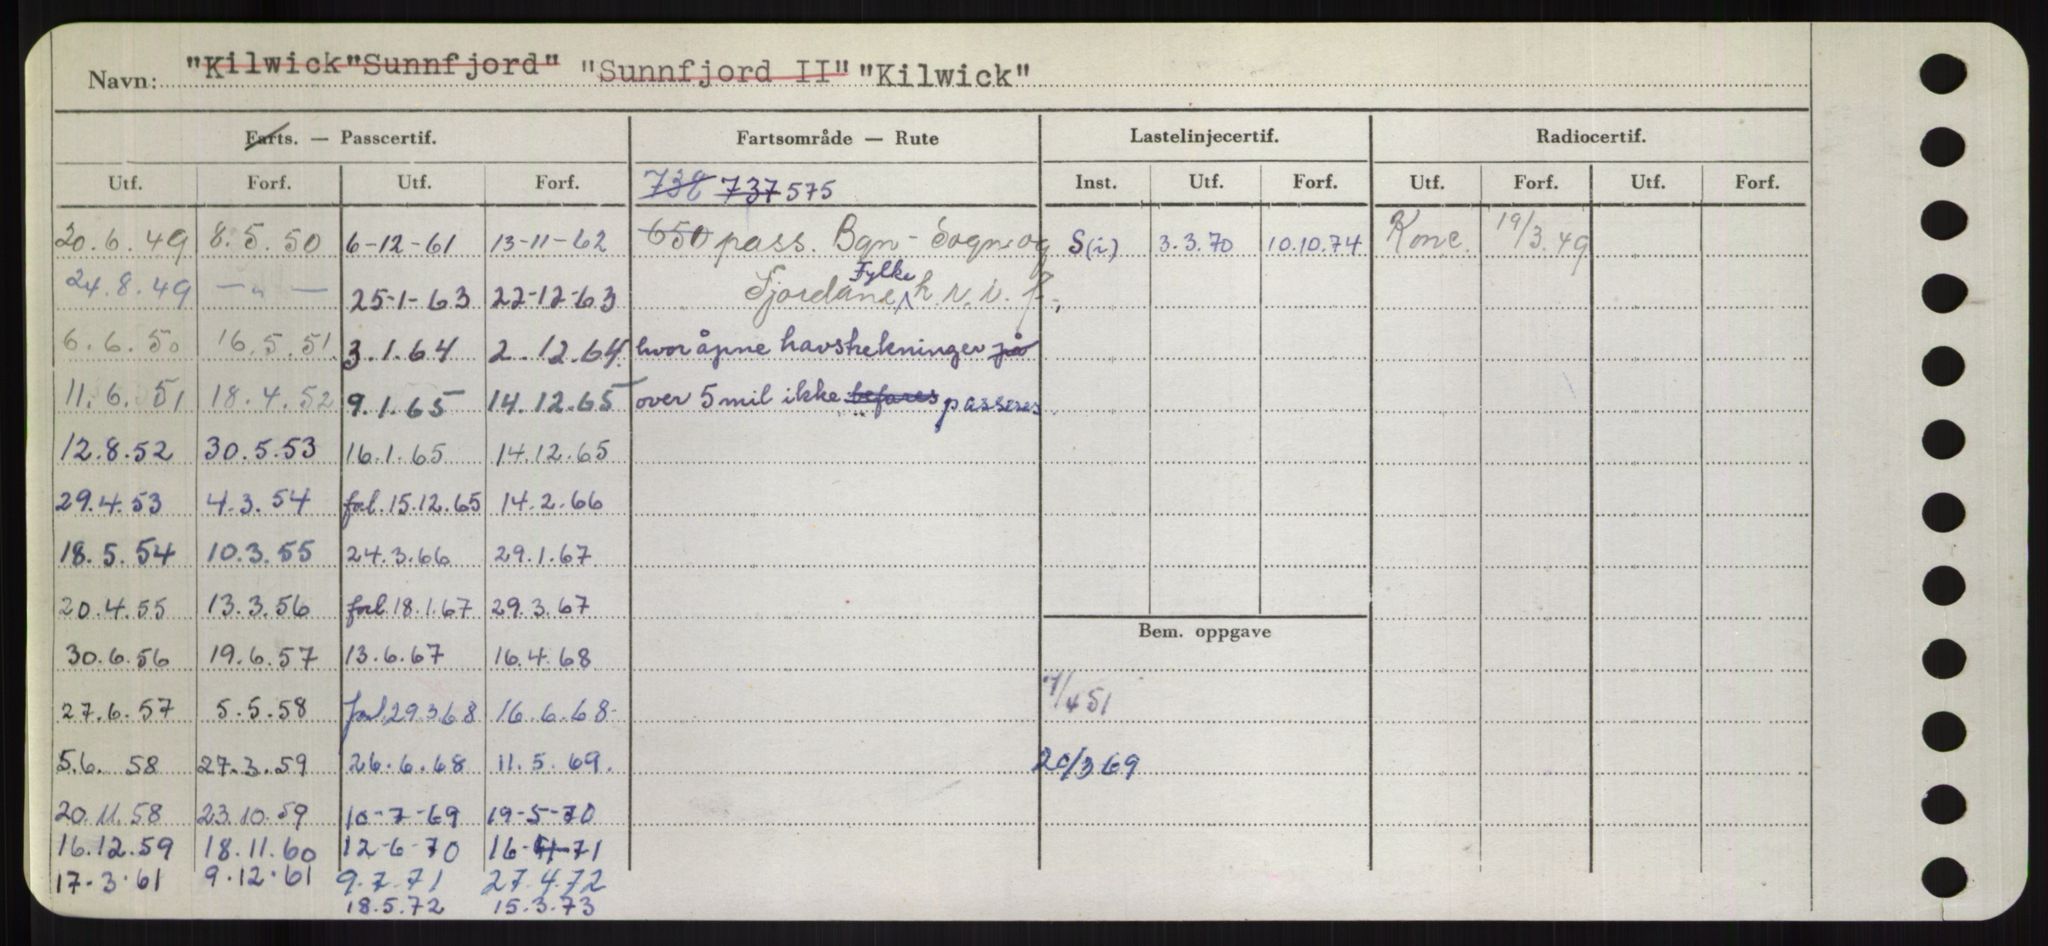 Navn: "Kilwick" "Sunnfjord" "Sunnfjord II" "Kilwick"
Farts. — Passcertif. Fartsområde — Rute Lastelinjecertif. Radiocertif.
Utf. Forf. Utf. Forf. 738 737 575 Inst. Utf. Forf. Utf. Forf. Utf. Forf.
20.6.49 8.5.50 6-12-61 13-11-62 650 pass. Bgn - Sogn og S(i) 3.3.70 10.10.74 Konc. 19/3.49
24.8.49 — " — 25-1-63 22-12-63 Fjordane Fylke h.r.i.f.,
6.6.50 16.5.51 3.1.64 2.12.64 hvor åpne havstrekninger på
11.6.51 18.4.52 9.1.65 14.12.65 over 5 mil ikke befares passeres
12.8.52 30.5.53 16.1.65 14.12.65
29.4.53 4.3.54 forl. 15.12.65 14.2.66
18.5.54 10.3.55 24.3.66 29.1.67
20.4.55 13.3.56 forl. 18.1.67 29.3.67
Bem. oppgave
30.6.56 19.6.57 13.6.67 16.4.68
27.6.57 5.5.58 forl. 29.3.68 16.6.68 /4 51
5.6.58 27.3.59 26.6.68 11.5.69. 20/3 69
20.11.58 23.10.59 10-7-69 19-5-70
16.12.59 18.11.60 12-6-70 16-4-71
17.3.61 9.12.61 9.7.71 27.4.72
18.5.72 15.3.73